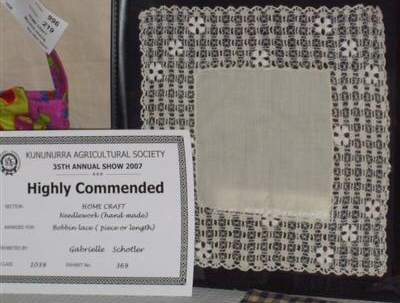 996
219
KUNUNURRA AGRICULTURAL SOCIETY
35TH ANNUAL SHOW 2007
Highly Commended
SECTION: HOME CRAFT
Needlework (hand made)
AWARDED FOR: Bobbin lace ( piece or length)
EXHIBITED BY Gabrielle Schotler
CLASS 1039 EXHIBIT No. 369